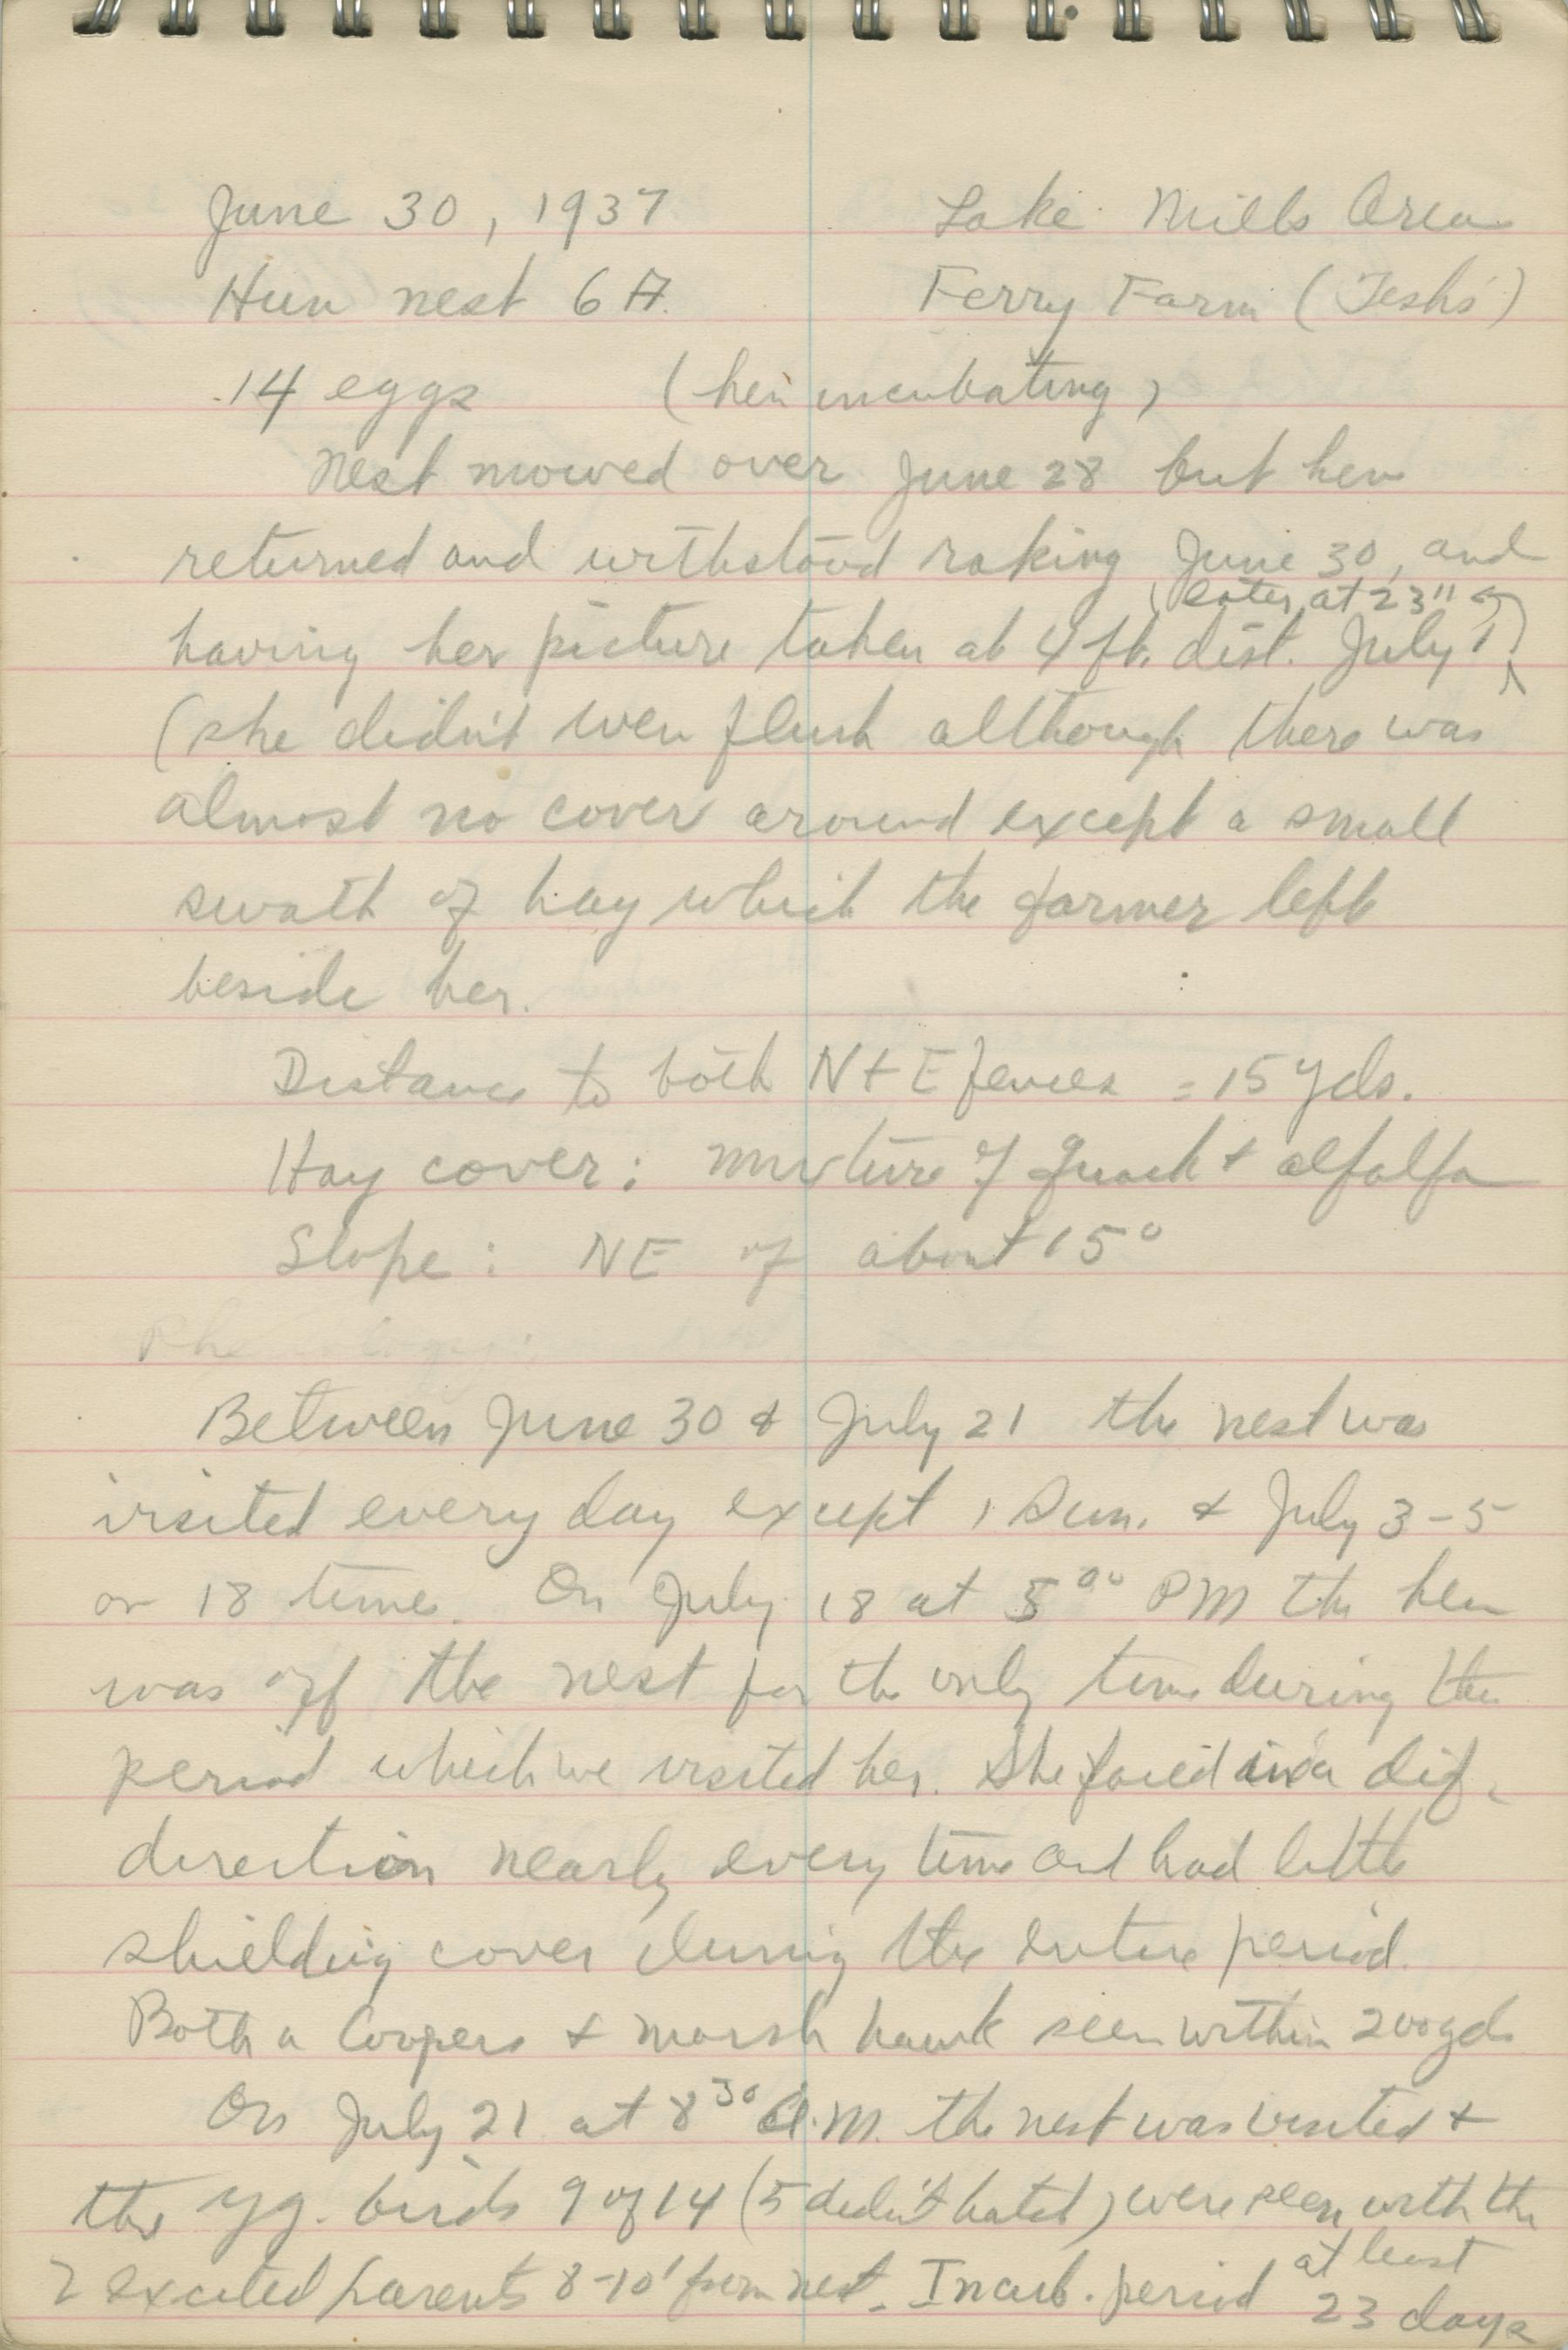 June 30, 1937 Lake Mills Area
Hun nest 6A. Ferry Farm (Tesh's)
14 eggs (hen incubating)
Nest mowed over June 28 but hen
returned and withstood raking June 30, and
(later at 23"
having her picture taken at 4 ft. dist. July 1)
(she didn't even flush although there was
almost no cover around except a small
swath of hay which the farmer left
beside her.
Distance to both N + E fences = 15 yds.
Hay cover: mixture of Quack + alfalfa
Slope: NE of about 15°
Phenology:
Between June 30 & July 21 the nest was
visited every day except 1 Sun. & July 3-5
or 18 times. On July 18 at 5⁰⁰ PM the hen
was off the nest for the only time during the
period which we visited her. She faced in a dif.
direction nearly every time and had little
shielding cover during the entire period.
Both a Coopers & marsh hawk seen within 200 yds
On July 21 at 8³⁰ A.M. the nest was visited +
the yg. birds 9 of 14 (5 didn't hatch) were seen with the
2 excited parents 8-10' from nest. Incub. period at least
23 days